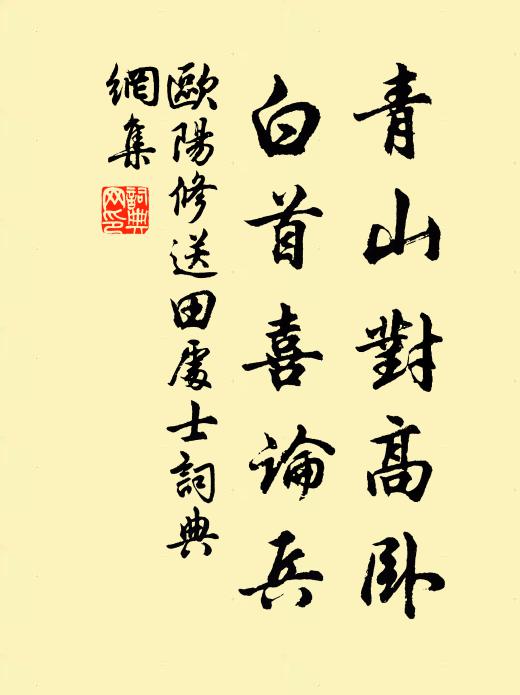 青山對高卧
白首喜論兵
歐陽修送田處士詞典
網集
詞典
网印